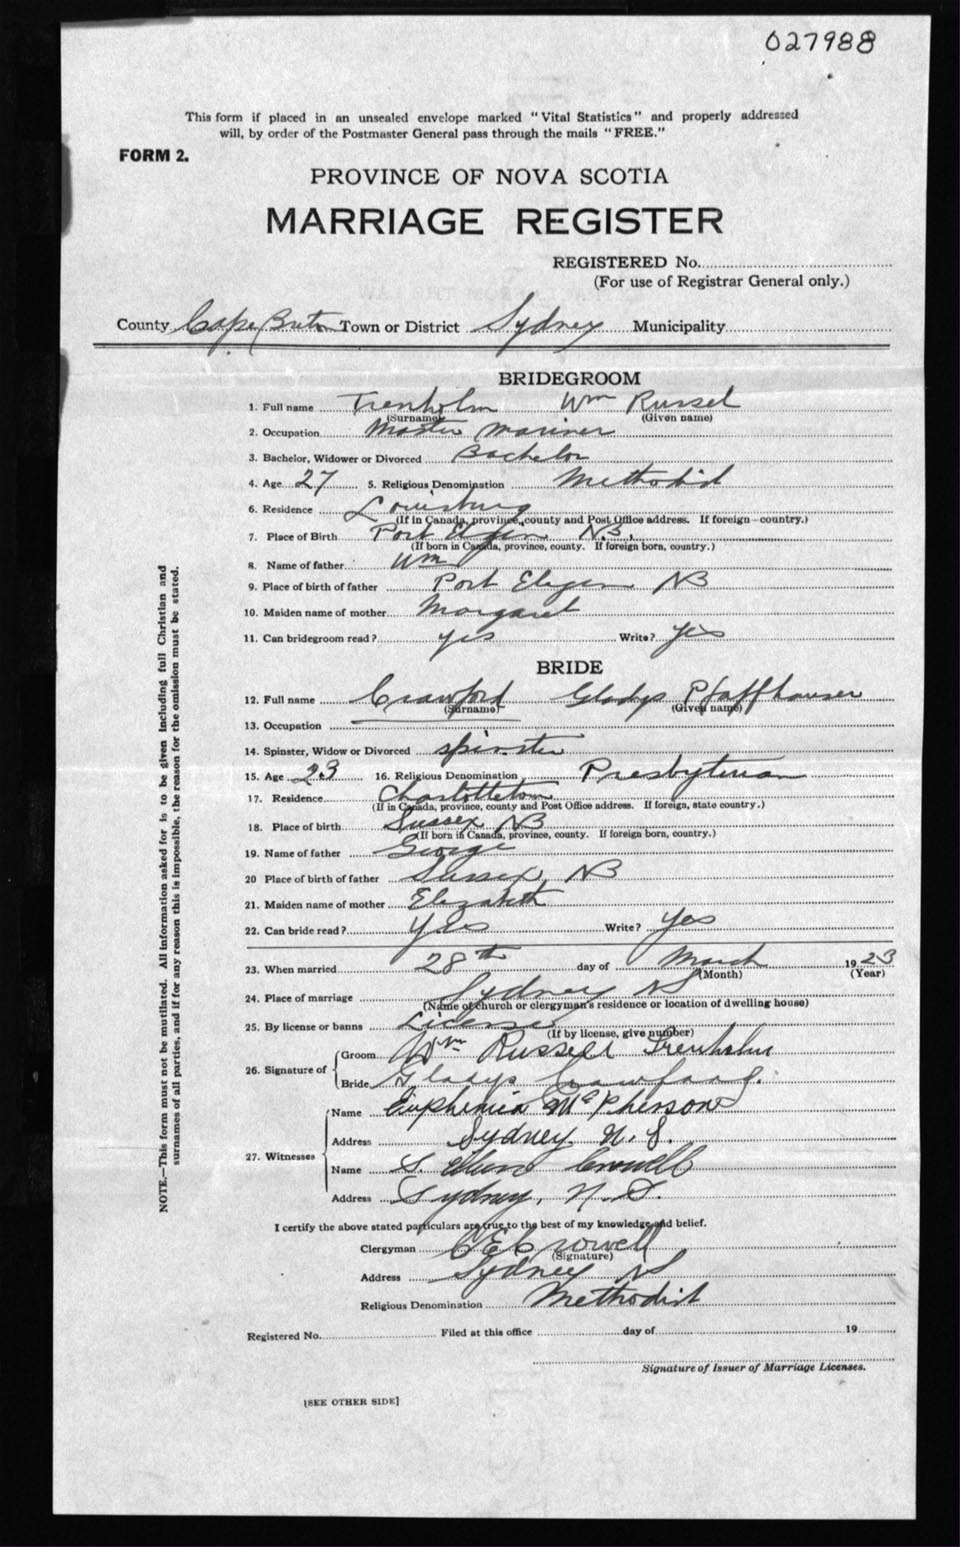 027988
This form if placed in an unsealed envelope marked "Vital Statistics" and properly addressed
will, by order of the Postmaster General pass through the mails "FREE."
FORM 2.
PROVINCE OF NOVA SCOTIA
MARRIAGE REGISTER
REGISTERED No.
(For use of Registrar General only.)
County Cape Breton Town or District Sydney Municipality
BRIDEGROOM
1. Full name Trenholm Wm Russel
(Surname) (Given name)
2. Occupation Master Mariner
3. Bachelor, Widower or Divorced Bachelor
4. Age 27 5. Religious Denomination Methodist
6. Residence Louisburg
(If in Canada, province, county and Post Office address. If foreign—country.)
7. Place of Birth Port Elgin N.B.
(If born in Canada, province, county. If foreign born, country.)
8. Name of father Wm
9. Place of birth of father Port Elgin NB
10. Maiden name of mother Margaret
11. Can bridegroom read? yes Write? yes
BRIDE
12. Full name Crawford Gladys Pfaffhauser
(Surname) (Given name)
13. Occupation
14. Spinster, Widow or Divorced spinster
15. Age 23 16. Religious Denomination Presbyterian
17. Residence Charlottetown
(If in Canada, province, county and Post Office address. If foreign, state country.)
18. Place of birth Sussex NB
(If born in Canada, province, county. If foreign born, country.)
19. Name of father George
20 Place of birth of father Sussex, NB
21. Maiden name of mother Elizabeth
22. Can bride read? yes Write? yes
23. When married 28th day of March 1923
(Month) (Year)
24. Place of marriage Sydney NS
(Name of church or clergyman's residence or location of dwelling house)
25. By license or banns License
(If by license, give number)
26. Signature of Groom Wm Russell Trenholm
Bride Gladys Crawford.
27. Witnesses Name Euphemia McPherson
Address Sydney. N. S.
Name S. Crowell
Address Sydney, N. S.
I certify the above stated particulars are true to the best of my knowledge and belief.
Clergyman C E Crowell
(Signature)
Address Sydney NS
Religious Denomination Methodist
Registered No. Filed at this office day of 19
Signature of Issuer of Marriage Licenses.
[SEE OTHER SIDE]
NOTE.—This form must not be mutilated. All information asked for is to be given including full Christian and
surnames of all parties, and if for any reason this is impossible, the reason for the omission must be stated.